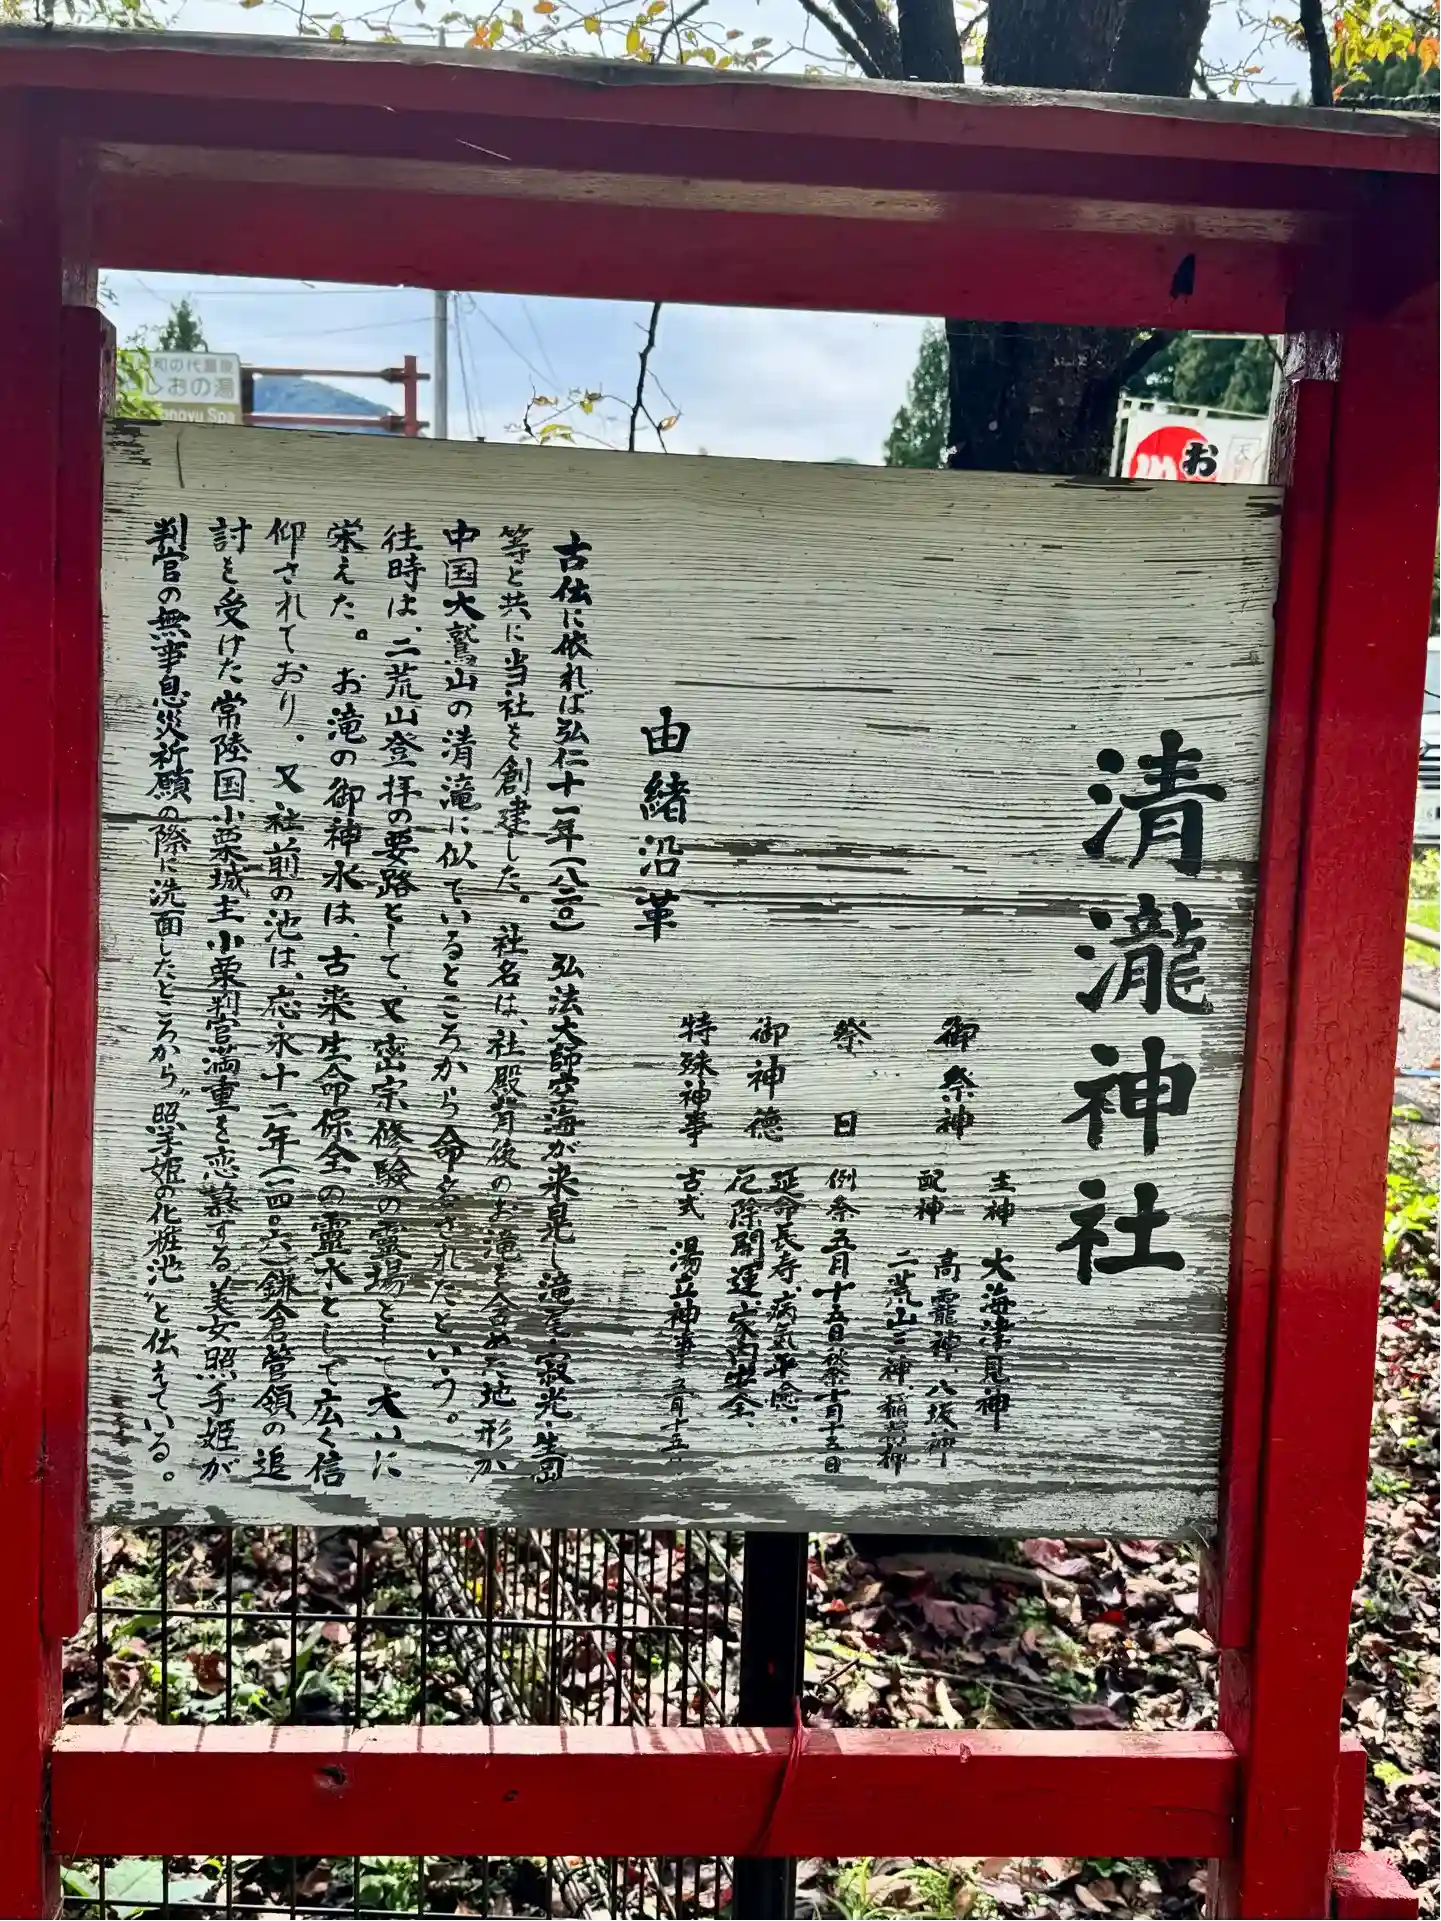 清瀧神社
御祭神
主神 大海津見神
配神 高龗神、八坂神
二荒山三神、稲荷神
祭日 例祭五月十五日秋祭十月十五日
御神徳 延命長寿、病気平癒、
厄除開運、家内安全、
特殊神事 古式 湯立神事 五月十五
由緒沿革
古伝に依れば弘仁十一年(八二〇)弘法大師空海が来晃し滝尾・寂光・生岡
等と共に当社を創建した。社名は、社殿背後のお滝を含めた地形が
中国大鷲山の清滝に似ているところから命名されたという。
往時は、二荒山登拝の要路として、又密宗修験の霊場として大いに
栄えた。お滝の御神水は、古来生命保全の霊水として広く信
仰されており、又社前の池は、応永十二年(一四〇六)鎌倉管領の追
討を受けた常陸国小栗城主小栗判官満重を恋慕する美女照手姫が
判官の無事息災祈願の際に洗面したところから“照手姫の化粧池”と伝えている。
和の代温泉
しおの湯
ongyu Spa
お